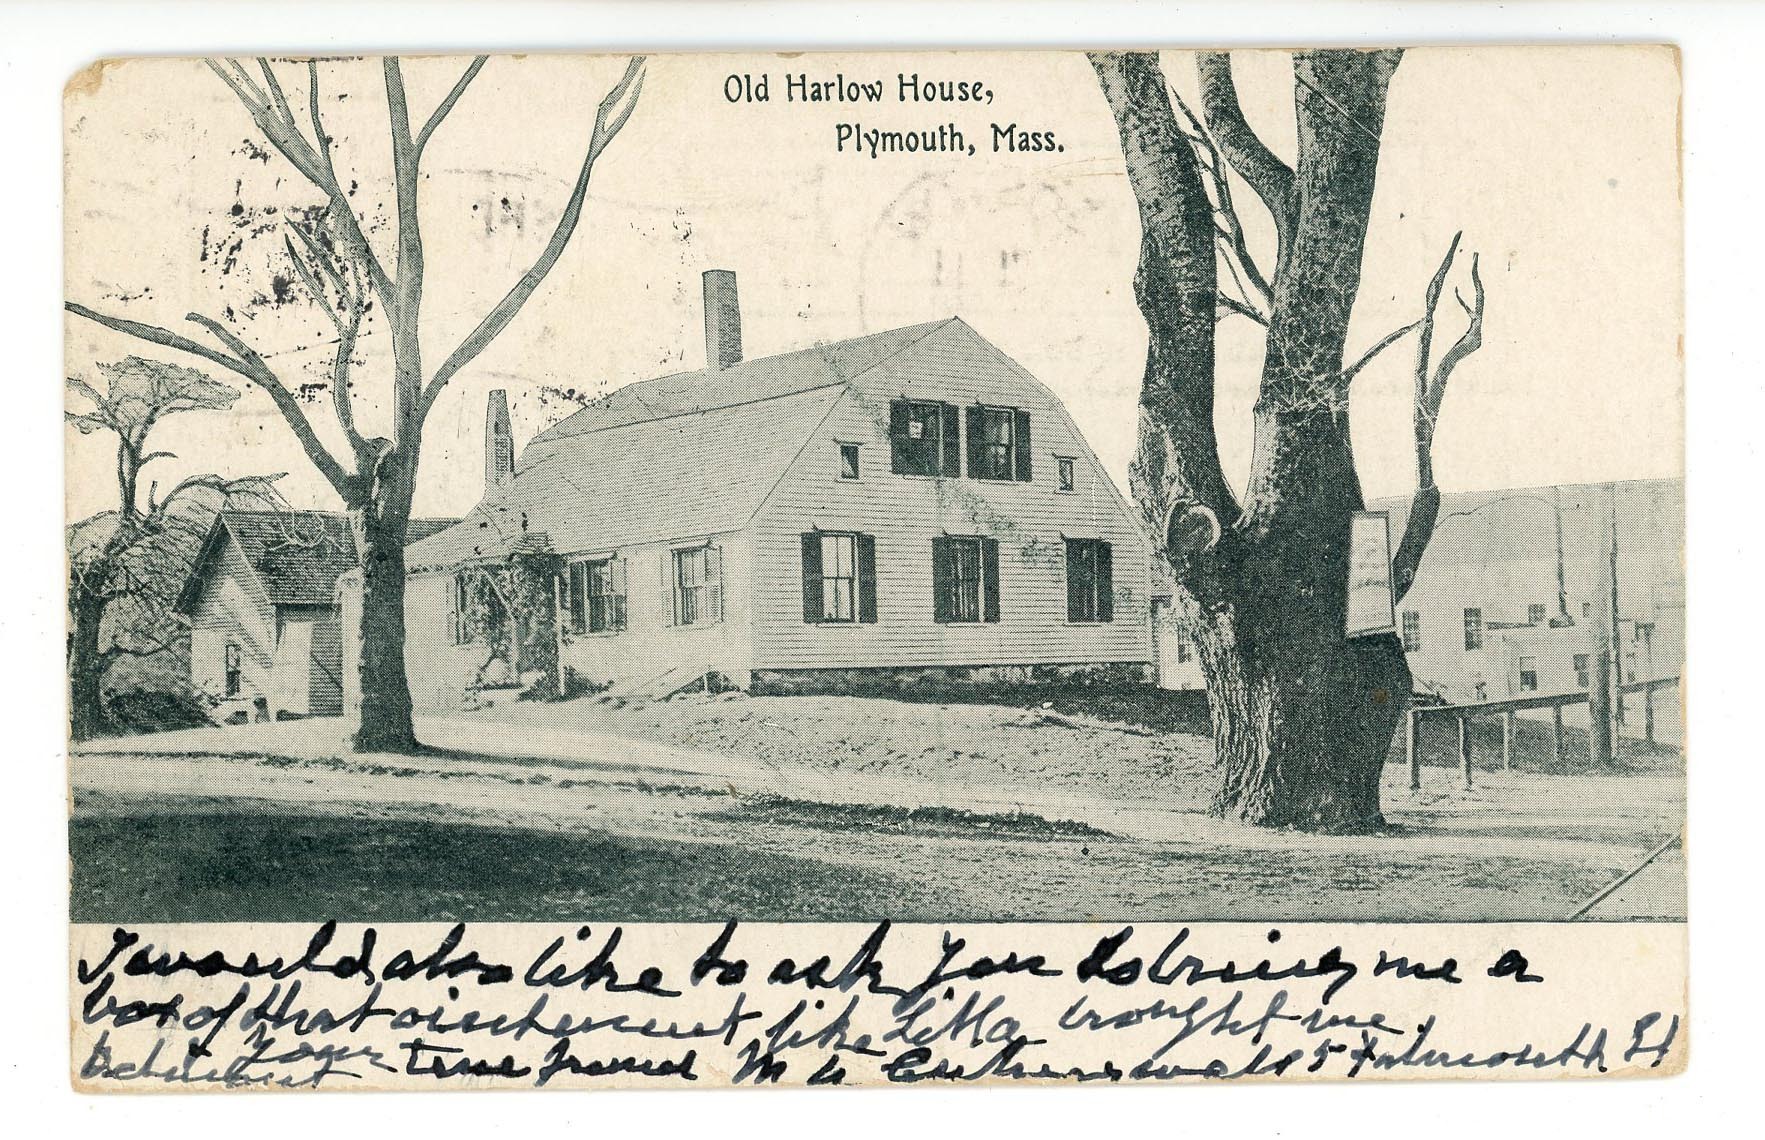 Old Harlow House,
Plymouth, Mass.
I would also like to ask you to bring me a
box of that ointement like Lilla brought me.
Your true friend M 5 Falmouth St